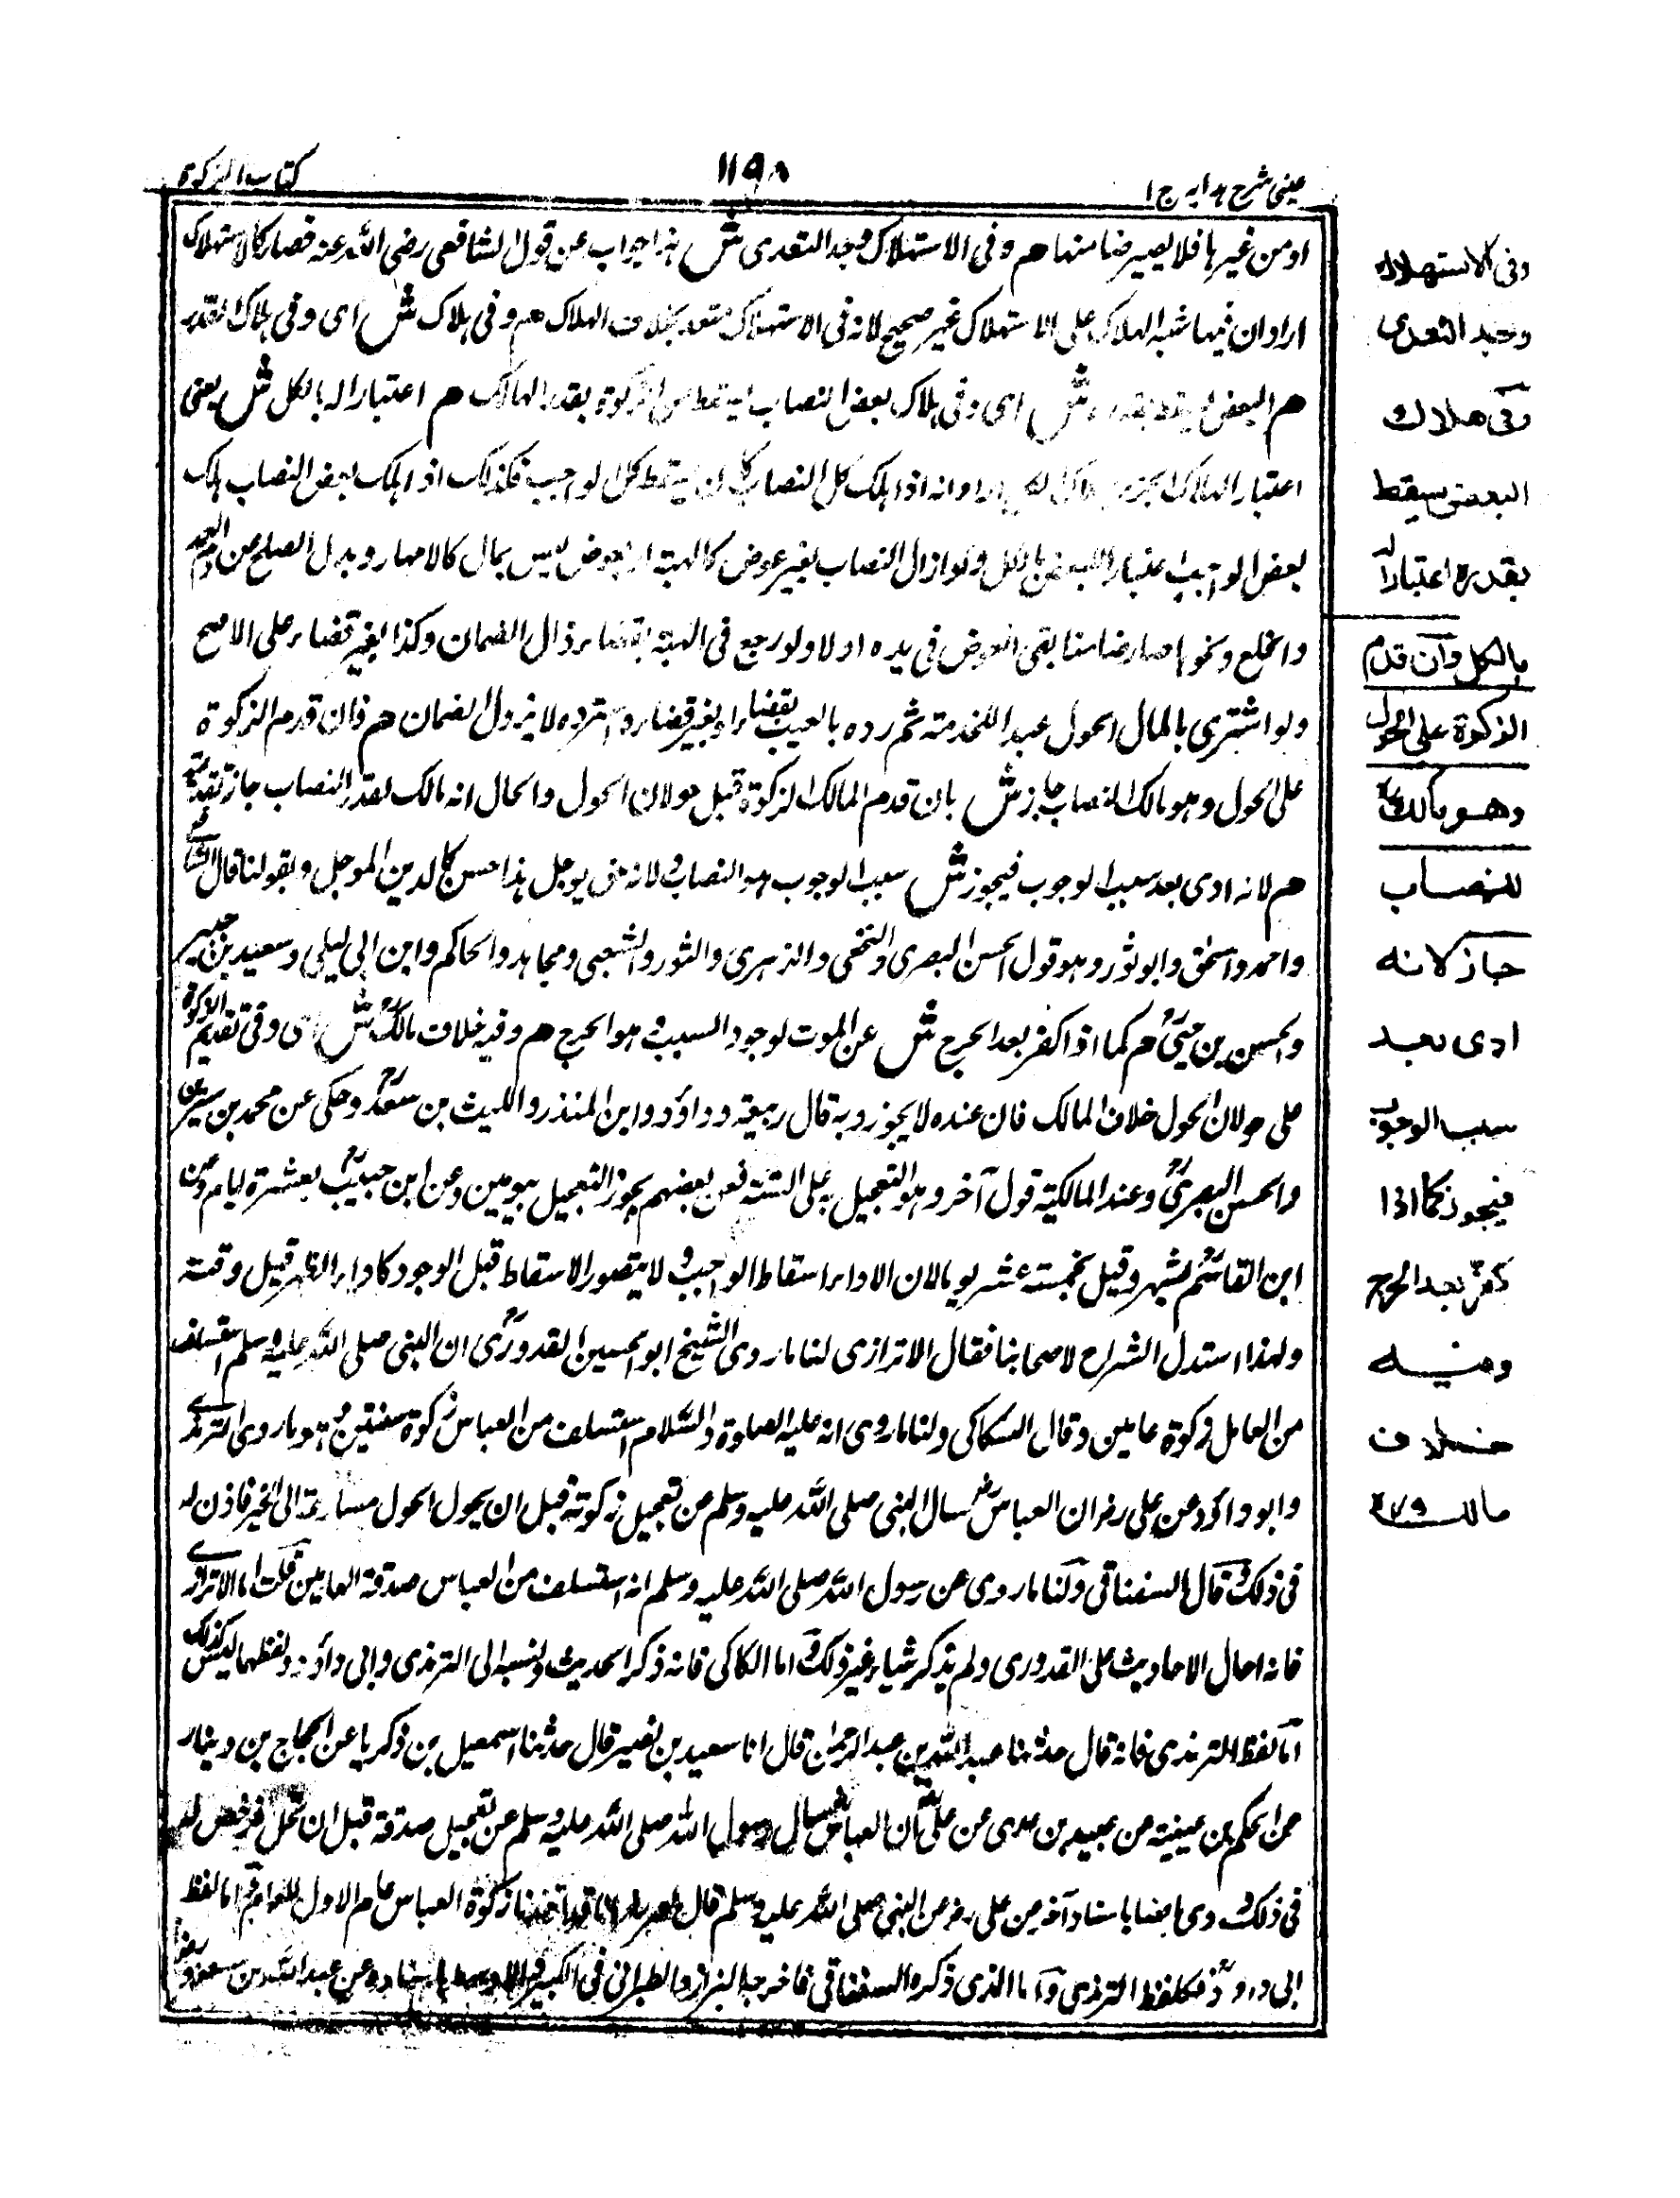 عينى شرح هدايه ج ١
١١٩٨
كتاب الزكوة
او من غيرها فلا يصير ضامنها هم و فى الاستهلاك وجد التعدى ش هذا جواب عن قول الشافعى رضى الله عنه فصار كالاستهلاك
اراد ان قياسه الهلاك على الاستهلاك غير صحيح لانه فى الاستهلاك متعد بخلاف الهلاك هم و فى هلاك ش اى و فى هلاك القدر
هم البعض يسقط بقدره ش اى و فى هلاك بعض النصاب يسقط من الزكوة بقدر الهالك هم اعتبارا له بالكل ش يعنى
اعتبار الهلاك انه اذا هلك كل النصاب يسقط كل الواجب فكذلك اذا هلك بعض النصاب هلك
بعض الواجب اعتبار البعض بالكل ولو ازال النصاب بغير عوض كالهبة او بعوض ليس بمال كالامهار و بدل الصلح من دم العمد
والخلع ونحوها صار ضامنا بقى العوض فى يده اولا ولو رجع فى الهبة بقضاء زال الضمان وكذا بغير قضاء على الاصح
ولو اشترى بالمال الحول عبدا للخدمة ثم رده بالعيب بقضاء او بغير قضاء واسترده لا يزول الضمان هم فان قدم الزكوة
على الحول وهو مالك النصاب جاز ش بان قدم المالك الزكوة قبل حولان الحول والحال انه مالك لقدر النصاب جاز تقديمه
هم لانه ادى بعد سبب الوجوب فيجوز ش سبب الوجوب هو النصاب ولانه حق يوجل هذا حسن كالدين الموجل وبقولنا قال الشافعى
واحمد واسحٰق وابو ثور وهو قول الحسن البصرى والنخعى والزهرى والثورى والشعبى ومجاهد والحاكم وابن ابى ليلى وسعيد بن جبير
والحسن بن حيى هم كما اذا كفر بعد الجرح ش عن الموت لوجود السبب وهو الجرح هم وفيه خلاف مالك ش اى وفى تقديم الزكوة
على حولان الحول خلاف المالك فان عنده لا يجوز وبه قال ربيعة وداؤد وابن المنذر والليث بن سعد وحكى عن محمد بن سيرين
والحسن البصرى وعند المالكية قول آخر وهو التعجيل على السنة فعن بعضهم يجوز التعجيل بيومين وعن ابن حبيب بعشرة ايام وعن
ابن القاسم بشهر وقيل بخمسة عشر يوما لان الاداء اسقاط الواجب ولا يتصور الاسقاط قبل الوجود كاداء الظهر قبل وقته
ولهذا استدل الشراح لاصحابنا فقال الاترازى لنا ما روى الشيخ ابو الحسين القدورى ان النبى صلى الله عليه وسلم استسلف
من العامل زكوة عامين وقال السكاكى ولنا ما روى انه عليه الصلوة والسلام استسلف من العباس زكوة سنتين وما روى الترمذى
وابو داؤد عن على رض ان العباس رض سال النبى صلى الله عليه وسلم من تعجيل زكوته قبل ان يحول الحول مسارعة الى الخير فاذن له
فى ذلك وقال السغناقى ولنا ما روى عن رسول الله صلى الله عليه وسلم انه استسلف من العباس صدقة العامين قلت اما الاترازى
فانه احال الاحاديث على القدورى ولم يذكر شياء غير ذلك و اما الكاكى فانه ذكر الحديث ونسبه الى الترمذى وابى داؤد ولفظهما ليس كذلك
اما لفظ الترمذى فانه قال حدثنا عبد الله بن عبد الرحمٰن قال انا سعيد بن نصير قال حدثنا اسمعيل بن ذكريا عن الحجاج بن دينار
عن الحكم بن عيينة عن عبيد بن عدى عن على ان العباس سال رسول الله صلى الله عليه وسلم عن تعجيل صدقة قبل ان تحل فرخص له
فى ذلك وروى ايضا باسناد آخر عن على رض عن النبى صلى الله عليه وسلم قال لعمر انا قد اخذنا زكوة العباس عام الاول للعام اما لفظ
ابى داؤد فكلفظ الترمذى واما الذى ذكره السغناقى فاخرجه البزار والطبرانى فى الكبير والاوسط باسناده عن عبد الله بن مسعود
وفى الاستهلاك
وجد التعدى
وفى هلاك
البعض يسقط
بقدره اعتبارا له
بالكل وان قدم
الزكوة على الحول
وهو مالك
للنصاب
جاز لانه
ادى بعد
سبب الوجوب
فيجوز كما اذا
كفر بعد الجرح
وفيه
خلاف
مالك رح